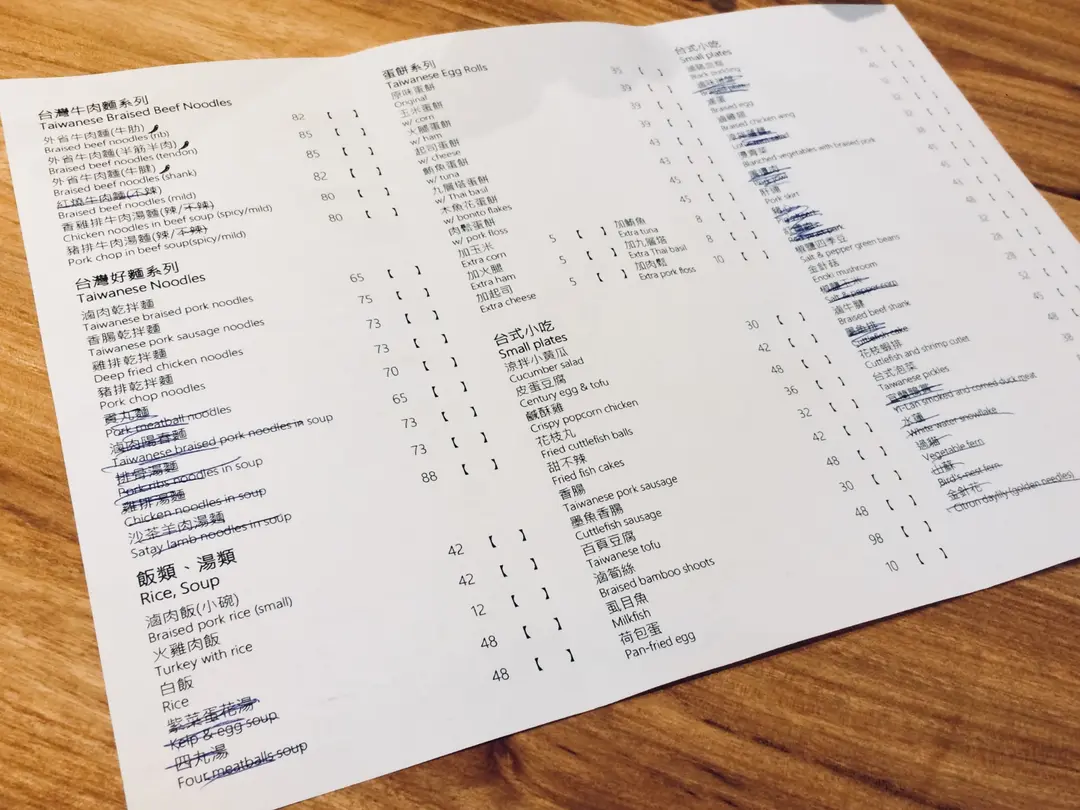 台灣牛肉麵系列
Taiwanese Braised Beef Noodles
外省牛肉麵(牛肋)
Braised beef noodles (rib) 82 【 】
外省牛肉麵(半筋半肉)
Braised beef noodles (tendon) 85 【 】
外省牛肉麵(牛腱)
Braised beef noodles (shank) 85 【 】
紅燒牛肉麵(不辣)
Braised beef noodles (mild) 82 【 】
香雞排牛肉湯麵(辣/不辣)
Chicken noodles in beef soup (spicy/mild) 80 【 】
豬排牛肉湯麵(辣/不辣)
Pork chop in beef soup(spicy/mild) 80 【 】
台灣好麵系列
Taiwanese Noodles
滷肉乾拌麵
Taiwanese braised pork noodles 65 【 】
香腸乾拌麵
Taiwanese pork sausage noodles 75 【 】
雞排乾拌麵
Deep fried chicken noodles 73 【 】
豬排乾拌麵
Pork chop noodles 73 【 】
貢丸麵
Pork meatball noodles 70 【 】
滷肉陽春麵
Taiwanese braised pork noodles in soup 65 【 】
排骨湯麵
Pork ribs noodles in soup 73 【 】
雞排湯麵
Chicken noodles in soup 73 【 】
沙茶羊肉湯麵
Satay lamb noodles in soup 88 【 】
飯類、湯類
Rice, Soup
滷肉飯(小碗)
Braised pork rice (small) 42 【 】
火雞肉飯
Turkey with rice 42 【 】
白飯
Rice 12 【 】
紫菜蛋花湯
Kelp & egg soup 48 【 】
四丸湯
Four meatballs soup 48 【 】
蛋餅系列
Taiwanese Egg Rolls
原味蛋餅
Original
玉米蛋餅
w/ corn 39
火腿蛋餅
w/ ham 39
起司蛋餅
w/ cheese 39
鮪魚蛋餅
w/ tuna 43
九層塔蛋餅
w/ Thai basil 43
木魚花蛋餅
w/ bonito flakes 45
肉鬆蛋餅
w/ pork floss 45
加玉米
Extra corn 5 【 】
加火腿
Extra ham 5 【 】
加起司
Extra cheese 5 【 】
加鮪魚
Extra tuna 8 【 】
加九層塔
Extra Thai basil 8 【 】
加肉鬆
Extra pork floss 10 【 】
台式小吃
Small plates
涼拌小黃瓜
Cucumber salad 30 【 】
皮蛋豆腐
Century egg & tofu 42 【 】
鹹酥雞
Crispy popcorn chicken 48 【 】
花枝丸
Fried cuttlefish balls 36 【 】
甜不辣
Fried fish cakes 32 【 】
香腸
Taiwanese pork sausage 42 【 】
墨魚香腸
Cuttlefish sausage 48 【 】
百頁豆腐
Taiwanese tofu 30 【 】
滷筍絲
Braised bamboo shoots 48 【 】
虱目魚
Milkfish 98 【 】
荷包蛋
Pan-fried egg 10 【 】
台式小吃
Small plates
Pork pudding
滷蛋
Braised egg
滷雞翅
Braised chicken wing
燙青菜
Blanched vegetables with braised pork
肝連
Pork skin
椒鹽四季豆
Salt & pepper green beans
金針菇
Enoki mushroom
Salt & pepper corn
滷牛腱
Braised beef shank
墨魚排
Cuttlefish cake
花枝蝦排
Cuttlefish and shrimp cutlet
台式泡菜
Taiwanese pickles
宜蘭鴨賞
Yi-Lan smoked and corned duck meat
水蓮
White water snowflake
過貓
Vegetable fern
山蘇
Bird's nest fern
金針花
Citron daylily (golden needles)